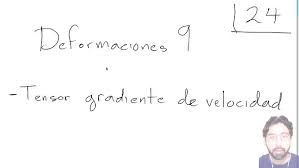 24
Deformaciones 9
- Tensor gradiente de velocidad